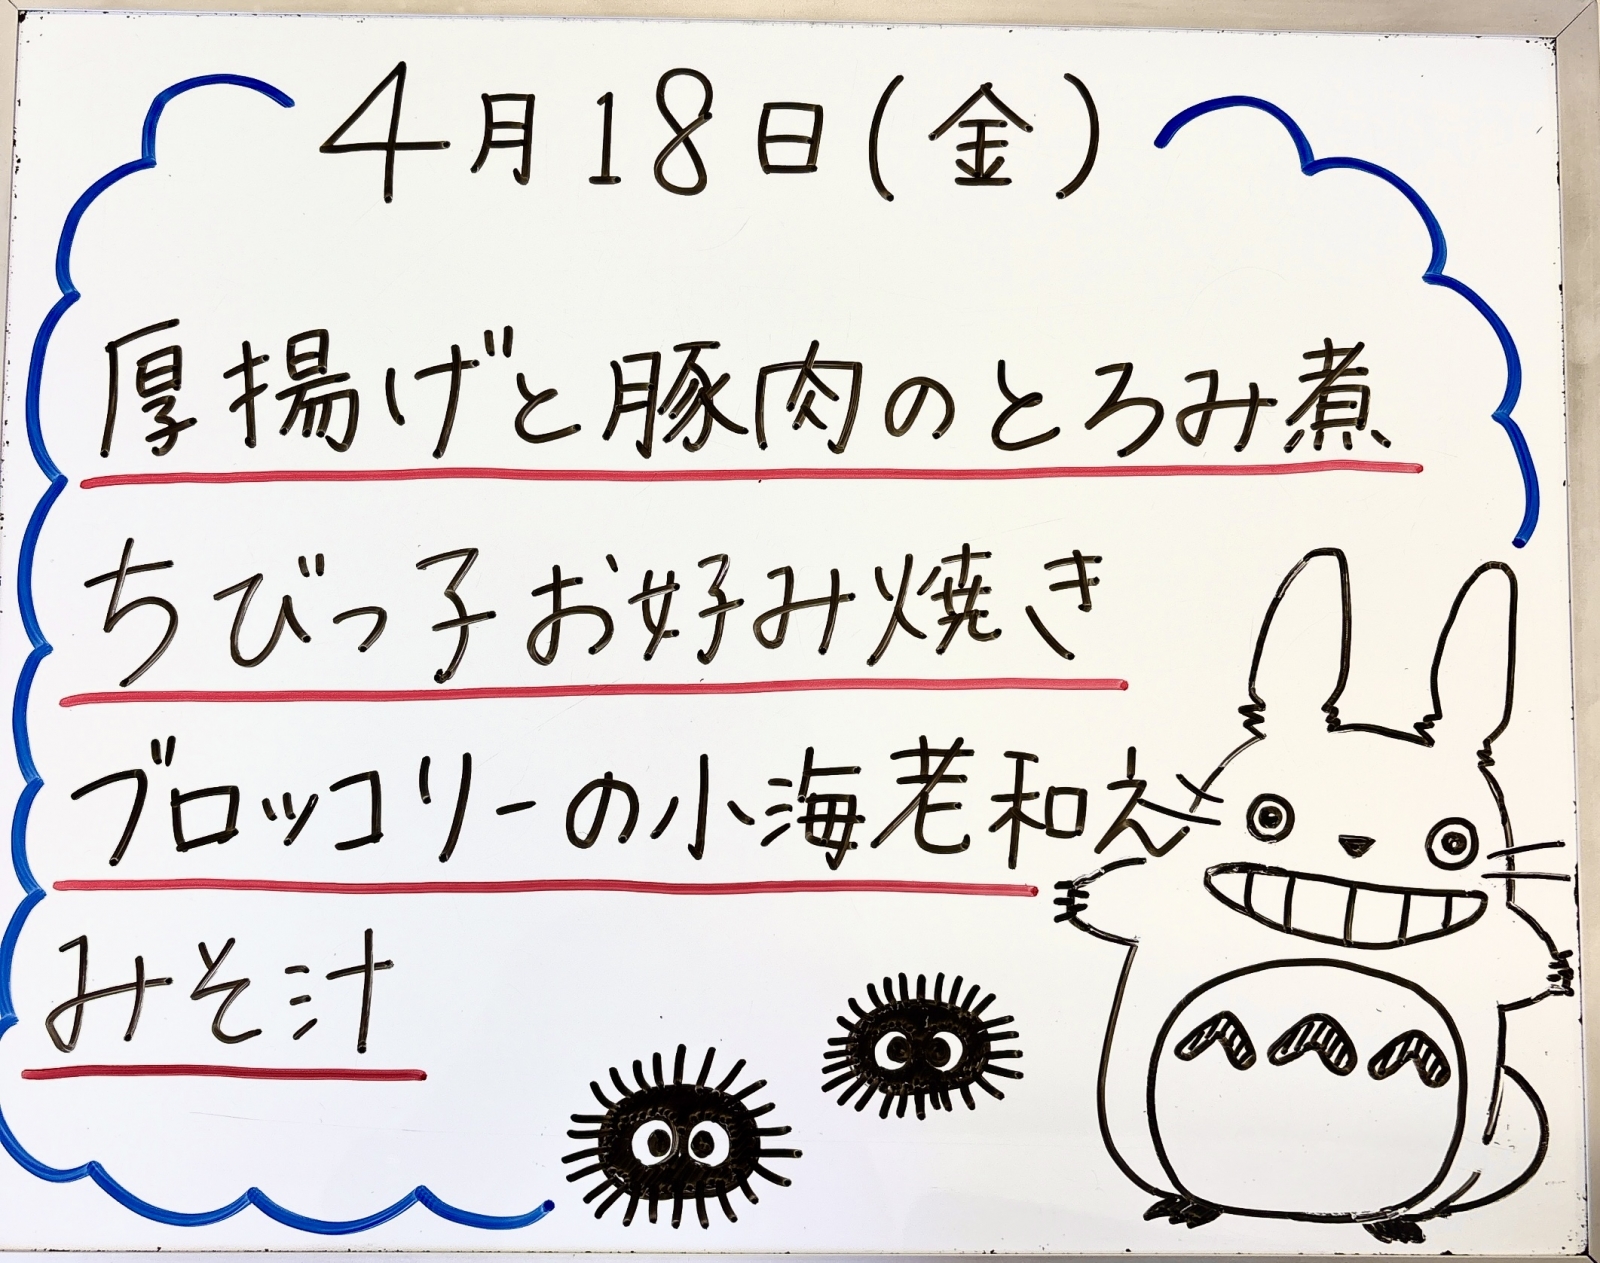 4月18日(金)
厚揚げと豚肉のとろみ煮
ちびっ子お好み焼き
ブロッコリーの小海老和え
みそ汁